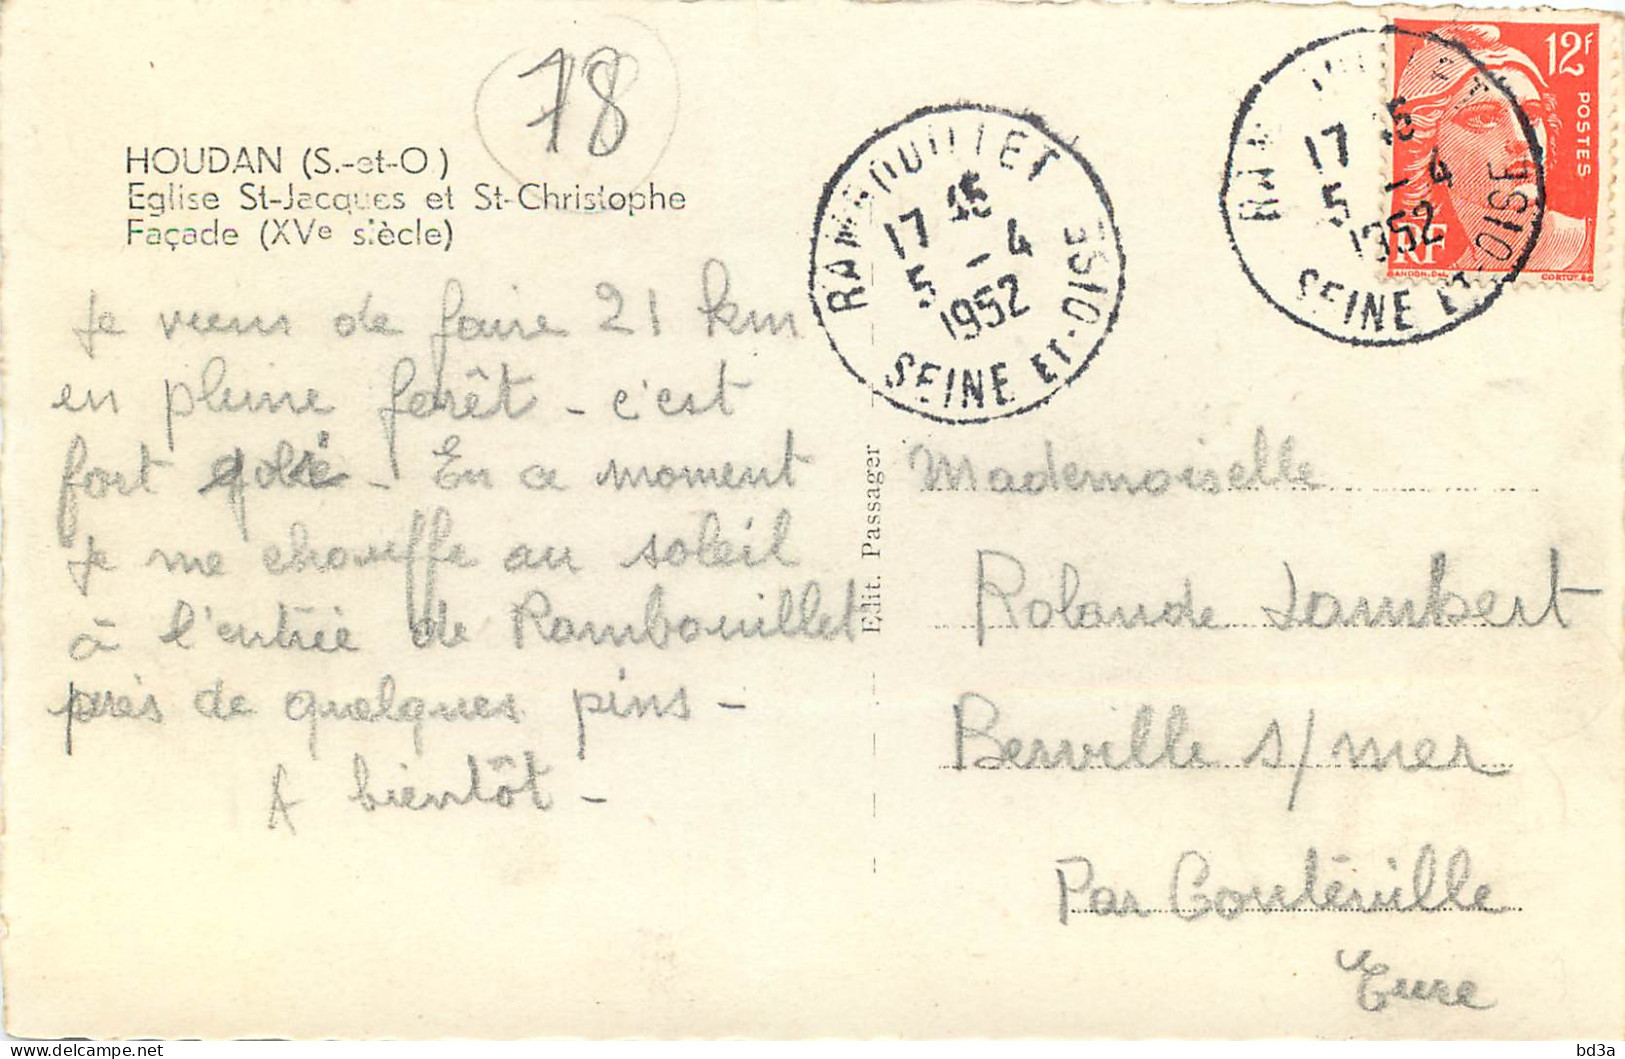 78
HOUDAN (S.-et-O)
Eglise St-Jacques et St-Christophe
Façade (XVe siècle)
Je viens de faire 21 km
en pleine forêt - c'est
fort - En ce moment
je me chauffe au soleil
à l'entrée de Rambouillet
près de quelques pins -
A bientôt -
Edit. Passager
RAMBOUILLET
17 45
5 - 4
1952
SEINE ET-OISE
17 45
5 - 4
1952
SEINE ET-OISE
12F
POSTES
RF
GANDON.Del.
CORTOT.SC
Mademoiselle
Rolande Lambert
Berville s/mer
Par Contéville
Eure
bd3a